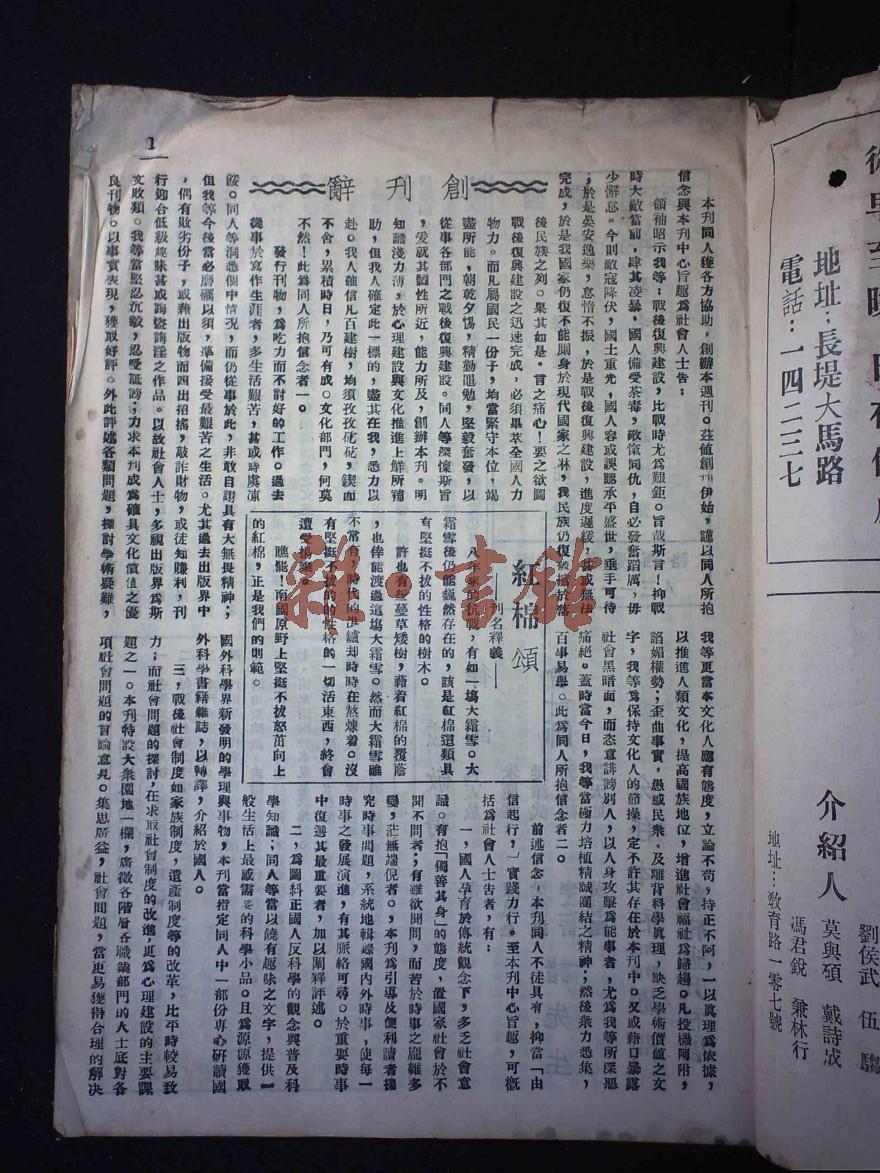 1
創刊辭
本刊同人獲各方協助，創辦本週刊。茲值創刊伊始，謹以同人所抱
信念與本刊中心旨趣爲社會人士告：
領袖昭示我等：戰後復興建設，比戰時尤爲艱鉅。旨哉斯言！抑戰
時大敵當前，肆其凌暴，國人備受荼毒，敵愾同仇，自必發奮蹈厲，毋
少懈怠。今則敵寇降伏，國土重光，國人容或誤認承平盛世，垂手可待
；於是晏安逸樂，怠惰不振，於是戰後復興建設，進度遲緩，甚或無法
完成，於是我國家仍復不能厠身於現代國家之林，我民族仍復
後民族之列。果其如是，言之痛心！要之欲圖
戰後復興建設之迅速完成，必須畢萃全國人力
物力。而凡屬國民一份子，均當緊守本位，竭
盡所能，朝乾夕惕，精勤黽勉，堅毅奮發，以
從事各部門之戰後復興建設。同人等深懔斯旨
，爰就其個性所近，能力所及，創辦本刊。明
知識淺力薄，於心理建設與文化推進上鮮所補
助，但我人確定此一標的，盡其在我，悉力以
赴。我人確信凡百建樹，均須孜孜矻矻，鍥而
不舍，累積時日，乃可有成。文化部門，何莫
不然！此爲同人所抱信念者一。
發行刊物，爲吃力而不討好的工作。過去
從事於寫作生涯者，多生活艱苦，甚或時虞凍
餒。同人等洞悉個中情況，而仍從事於此，非敢自詡具有大無畏精神；
但我等今後當必磨礪以須，準備接受最艱苦之生活。尤其過去出版界中
，偶有敗劣份子，或藉出版物而四出招搖，敲詐財物，或徒知賺利，刊
行迎合低級趣味甚或誨盜誨淫之作品。以故社會人士，多視出版界爲斯
文敗類。我等當堅忍沉毅，忍受誣謗；力求本刊成爲確具文化價值之優
良刊物。以事實表現，獲取好評。外此評述各類問題，探討學術疑難，
紅棉頌
——刊名釋義——
八年來的抗戰，有如一塲大霜雪。大
霜雪後仍能巍然存在的，該是紅棉這類具
有堅挺不拔的性格的樹木。
許也有些蔓草矮樹，藉着紅棉的覆蔭
，也倖能渡過這塲大霜雪。然而大霜雪雖
不常有，時代的洪爐却時時在熬煉着。沒
有堅挺不拔的的性格的一切活東西，終會
遭受
瞧罷！南國原野上堅挺不拔怒茁向上
的紅棉，正是我們的則範。
我等更當本文化人應有態度，立論不苟，持正不阿，一以眞理爲依據，
以推進人類文化，提高國族地位，增進社會福祉爲歸趨。凡投機阿附，
諂媚權勢；歪曲事實，愚惑民衆，及離背科學眞理，缺乏學術價值之文
字，我等爲保持文化人的節操，定不許其存在於本刊中。又或藉口暴露
社會黑暗面，而恣意誹謗別人，以人身攻擊爲能事者，尤爲我等所深惡
痛絕。蓋時當今日，我等當極力培植精誠團結之精神；然後衆力悉集，
百事易舉。此爲同人所抱信念者二。
前述信念，本刊同人不徒具有，抑當「由
信起行」，實踐力行。至本刊中心旨趣，可概
括爲社會人士告者，有：
一，國人孕育於傳統觀念下，多乏社會意
識。有抱「獨善其身」的態度，置國家社會於不
聞不問者；有雖欲聞問，而苦於時事之龐雜多
變，茫無端倪者。，本刊爲引導及便利讀者探
究時事問題，系統地輯綜國內外時事，使每一
時事之發展演進，有其脈絡可尋。於重要時事
中復選其最重要者，加以闡釋評述。
二，爲圖糾正國人反科學的觀念與普及科
學知識；同人等當以饒有趣味之文字，提供一
般生活上最感需要的科學小品。且爲源源獲取
國外科學界新發明的學理與事物，本刊當指定同人中一部份專心研讀國
外科學書籍雜誌，以轉譯，介紹於國人。
三，戰後社會制度如家族制度，遺產制度等的改革，比平時較易致
力；而社會問題的探討，在求取社會制度的改進，更爲心理建設的主要課
題之一。本刊特設大衆園地一欄，廣徵各階層各職業部門的人士底對各
項社會問題的言論意見。集思廣益，社會問題，當更易獲得合理的解決
地址：長堤大馬路
電話：一四二三七
介紹人
劉侯武 伍
莫與碩 戴詩成
馮君銳 兼林行
地址：敎育路一零七號
雜·書館